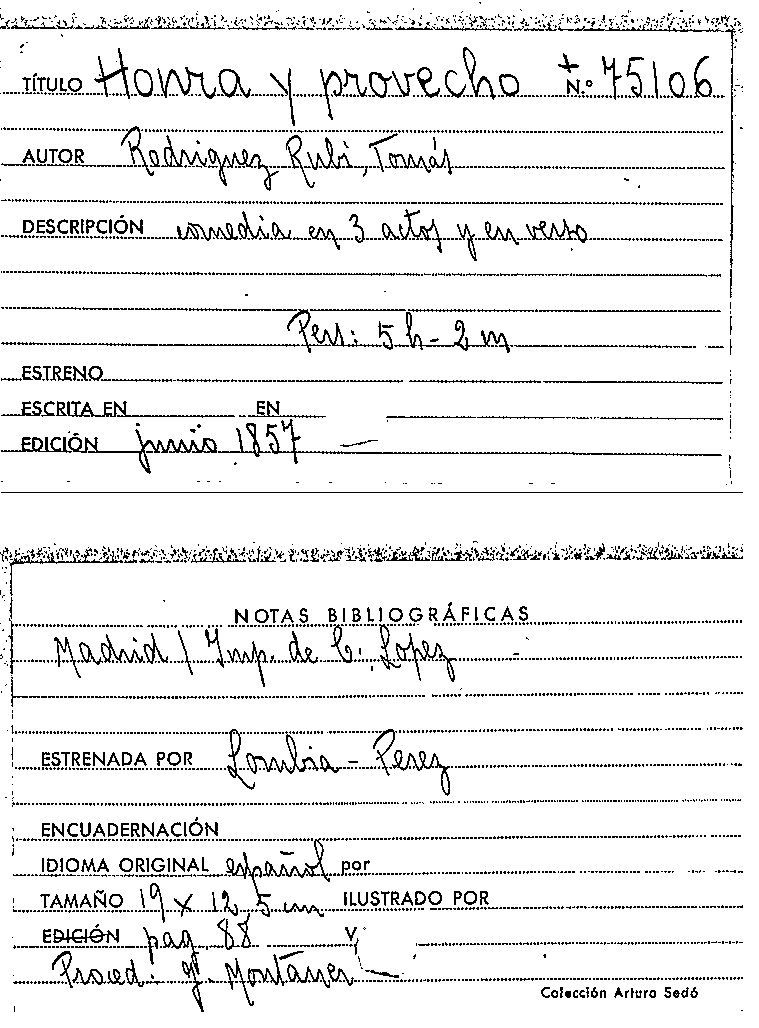 TÍTULO Honra y provecho + N.º 75106
AUTOR Rodriguez Rubí, Tomás
DESCRIPCIÓN comedia en 3 actos y en verso
Pers: 5 h - 2 m
ESTRENO
ESCRITA EN EN
EDICIÓN junio 1857 —
NOTAS BIBLIOGRÁFICAS
Madrid / Imp. de C. Lopez -
ESTRENADA POR Lombia - Perez
ENCUADERNACIÓN
IDIOMA ORIGINAL español por
TAMAÑO 19 x 12,5 cm ILUSTRADO POR
EDICIÓN pag. 88 V.
Proced: Montaner —
Colección Arturo Sedó